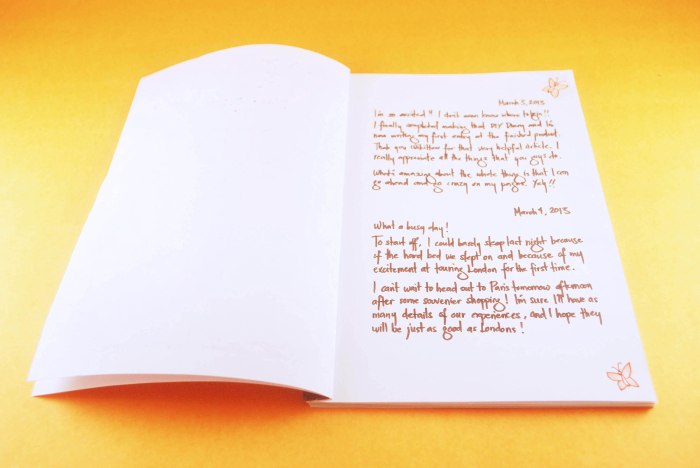 March 3, 2013
I'm so excited!! I don't even know where to begin!!
I finally completed making that DIY Diary and I'm
now writing my first entry at the finished product.
Thank you wikiHow for that very helpful article. I
really appreciate all the things that you guys do.
What's amazing about the whole thing is that I can
go ahead and go crazy on my pages. Yay!!
March 4, 2013
What a busy day!
To start off, I could barely sleep last night because
of the hard bed we slept on and because of my
excitement at touring London for the first time.
I can't wait to head out to Paris tomorrow afternoon
after some souvenier shopping! I'm sure I'll have as
many details of our experiences, and I hope they
will be just as good as Londons!